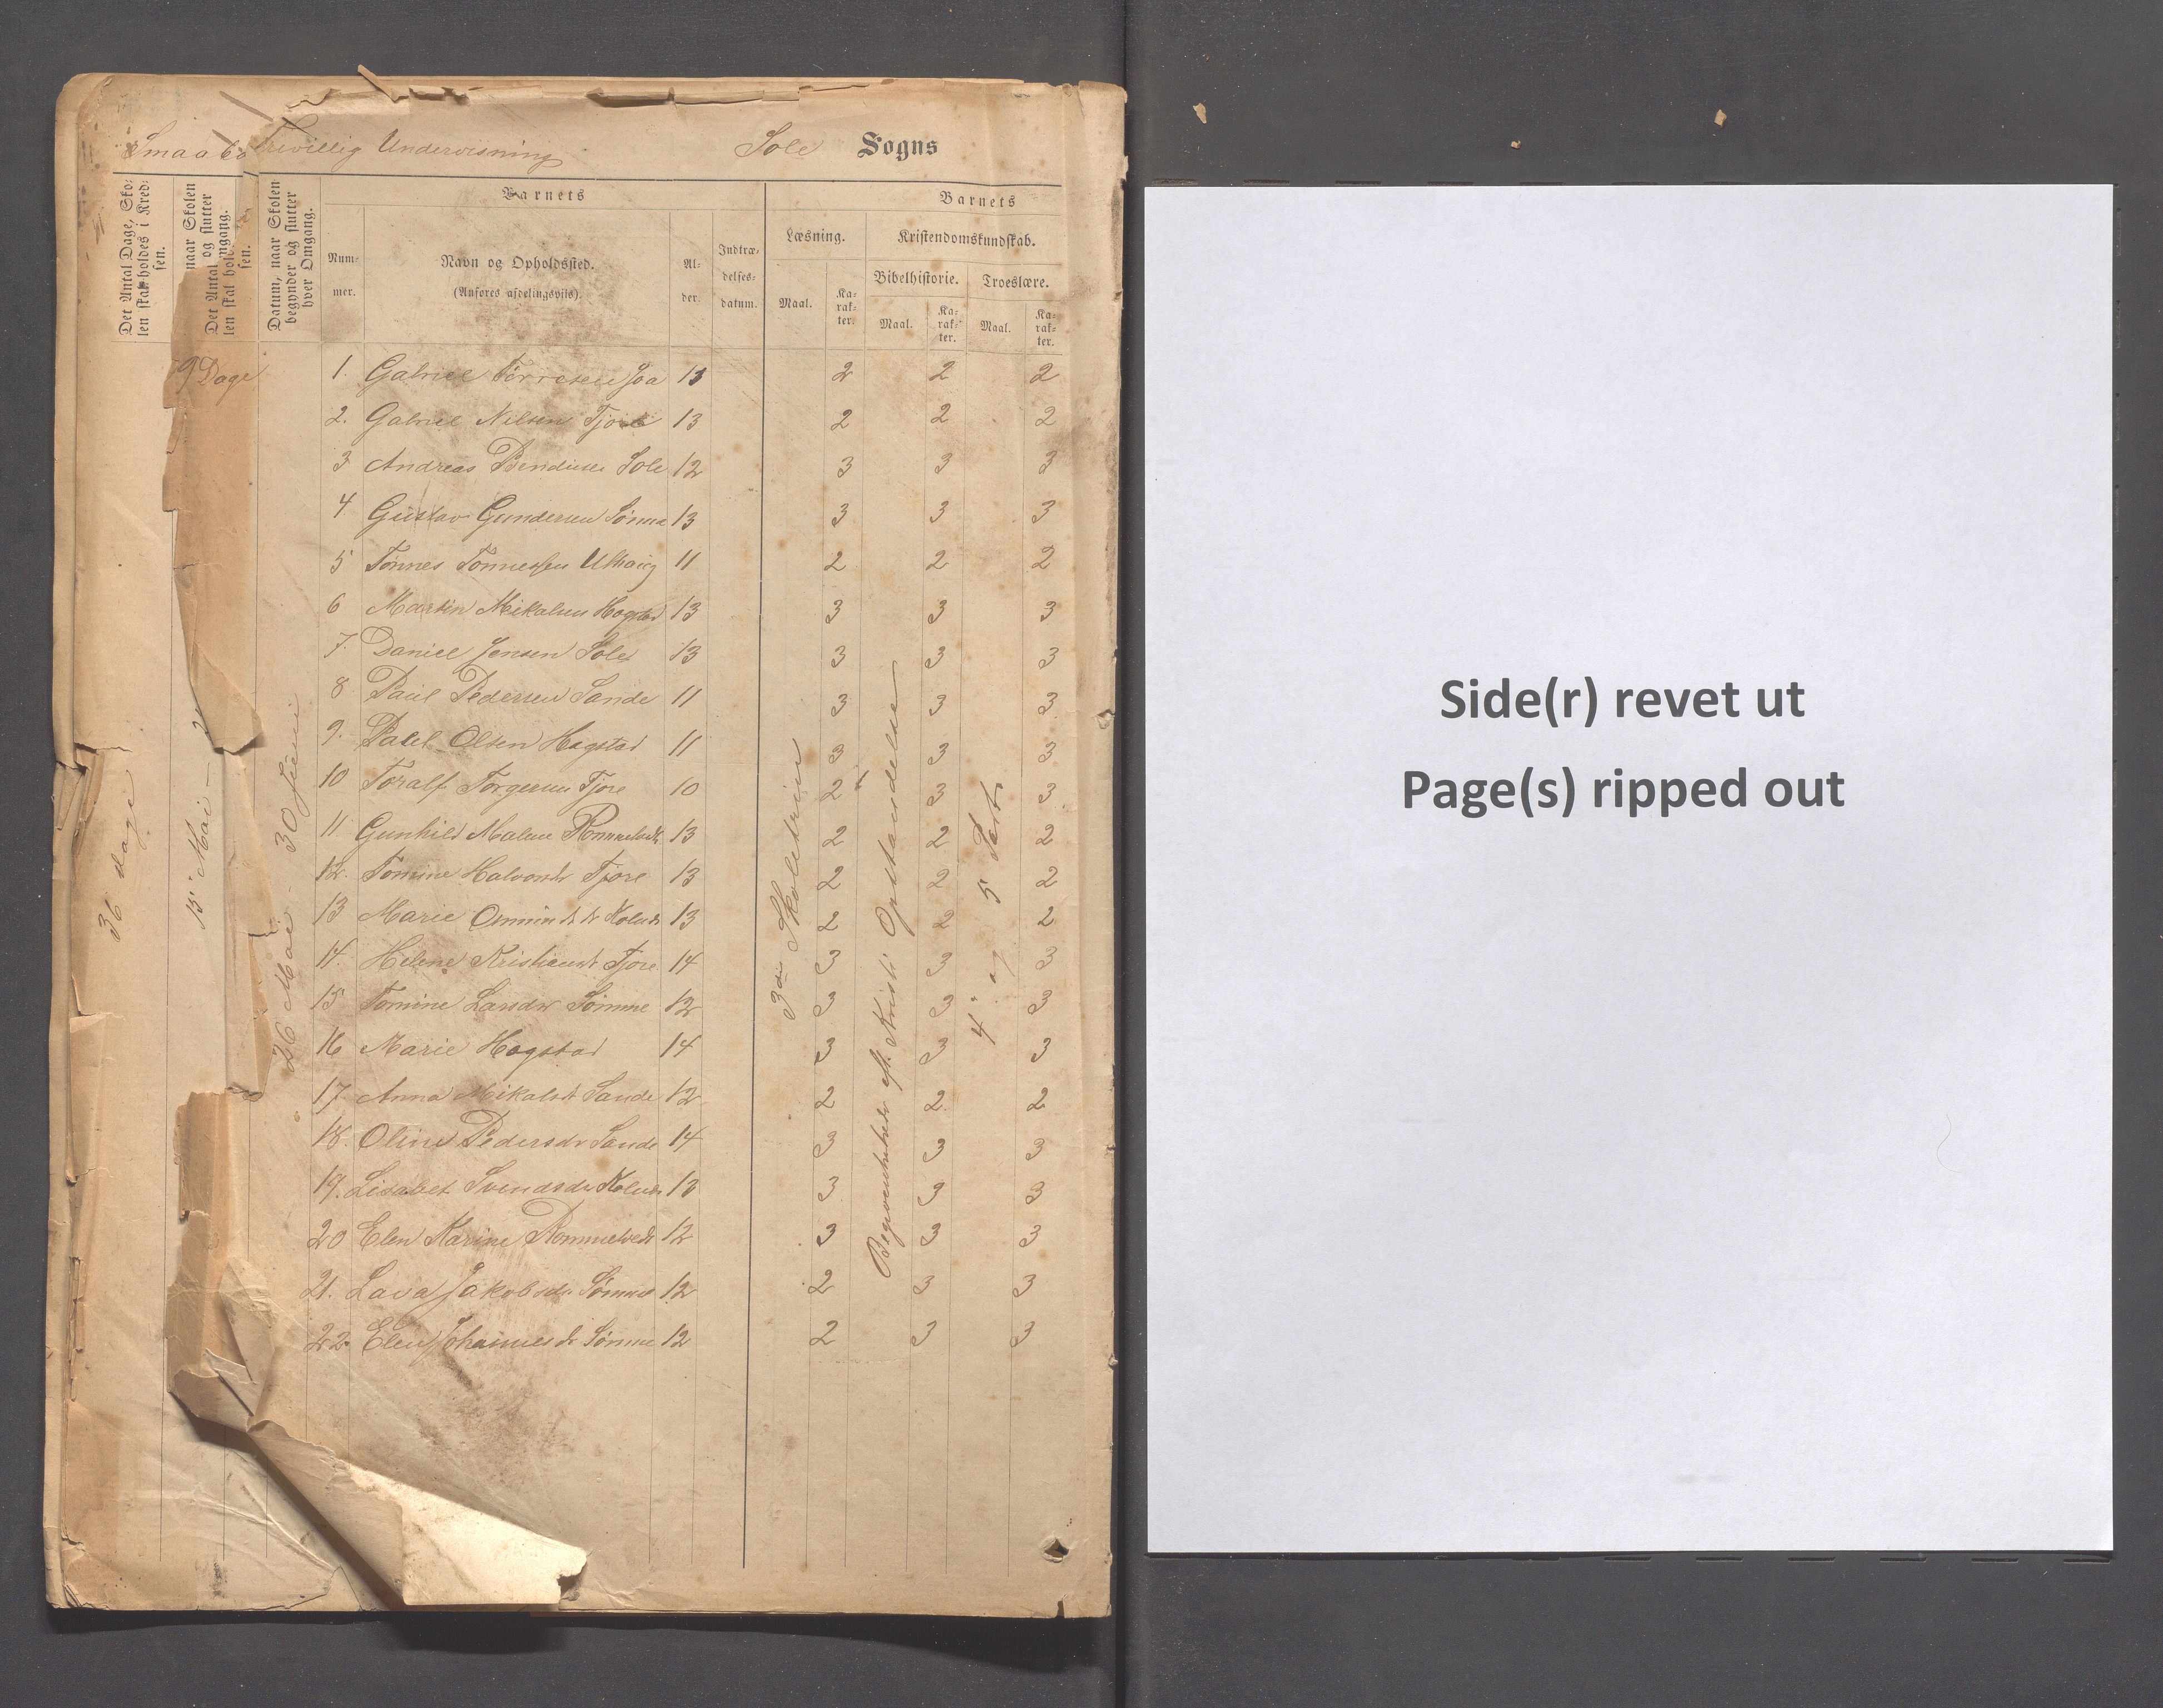 Frivillig Undervisning Sole Sogns
Det Antal Dage, Sko-
len skal holdes i Kred-
sen.
naar Skolen
og slutter
Det Antal
len skal hol
sen.
Datum, naar Skolen
begynder og slutter
hver Omgang.
Barnets
Barnets
Num-
mer.
Navn og Opholdssted.
(Anføres afdelingsvis).
Al-
der.
Indtræ-
delses-
datum.
Læsning.
Kristendomskundskab.
Bibelhistorie.
Troeslære.
Maal.
Ka-
rak-
ter.
Maal.
Ka-
rak-
ter.
Maal.
Ka-
rak-
ter.
9 Dage
36 dage
15 Mai —
26 Mai - 30 Juni
1. Gabriel Tørresen Joa 13 2 2 2
2. Gabriel Nilsen Tjore 13 2 2 2
3 Andreas Sole 12 3 3 3
4 Gustav Gundersen Sømme 13 3 3 3
5 Tønnes Tønnessen Uthaug 11 2 2 2
6 Martin Mikalsen Hogstad 13 3 3 3
7. Daniel Jensen Sole 13 3 3 3
8 Paul Pedersen Sande 11 3 3 3
9. Olsen Hogstad 11 3 3 3
10 Toralf Torgersen Tjore 10 2 3 3
11 Gunhild Malene 13 2 2 2
12. Tomine Halvorsdr Tjore 13 2 2 2
13 Marie 13 2 2 2
14. Helene Kristiansdr Tjore 14 3 3 3
15 Tomine Larsdr Sømme 12 3 3 3
16 Marie Hogstad 14 3 3 3
17. Anna Mikalsdr Sande 12 2 2 2
18. Oline Pedersdr Sande 14 3 3 3
19. Lisabet Svendsdr 13 3 3 3
20 Elen Karine 12 3 3 3
21. Jakobsdr Sømme 12 2 3 3
22 Elen Johannesdr Sømme 12 2 3 3
3die Skoletrin
Begivenheder eft. Kristi Opstandelse
4. og 5 Part
Side(r) revet ut
Page(s) ripped out